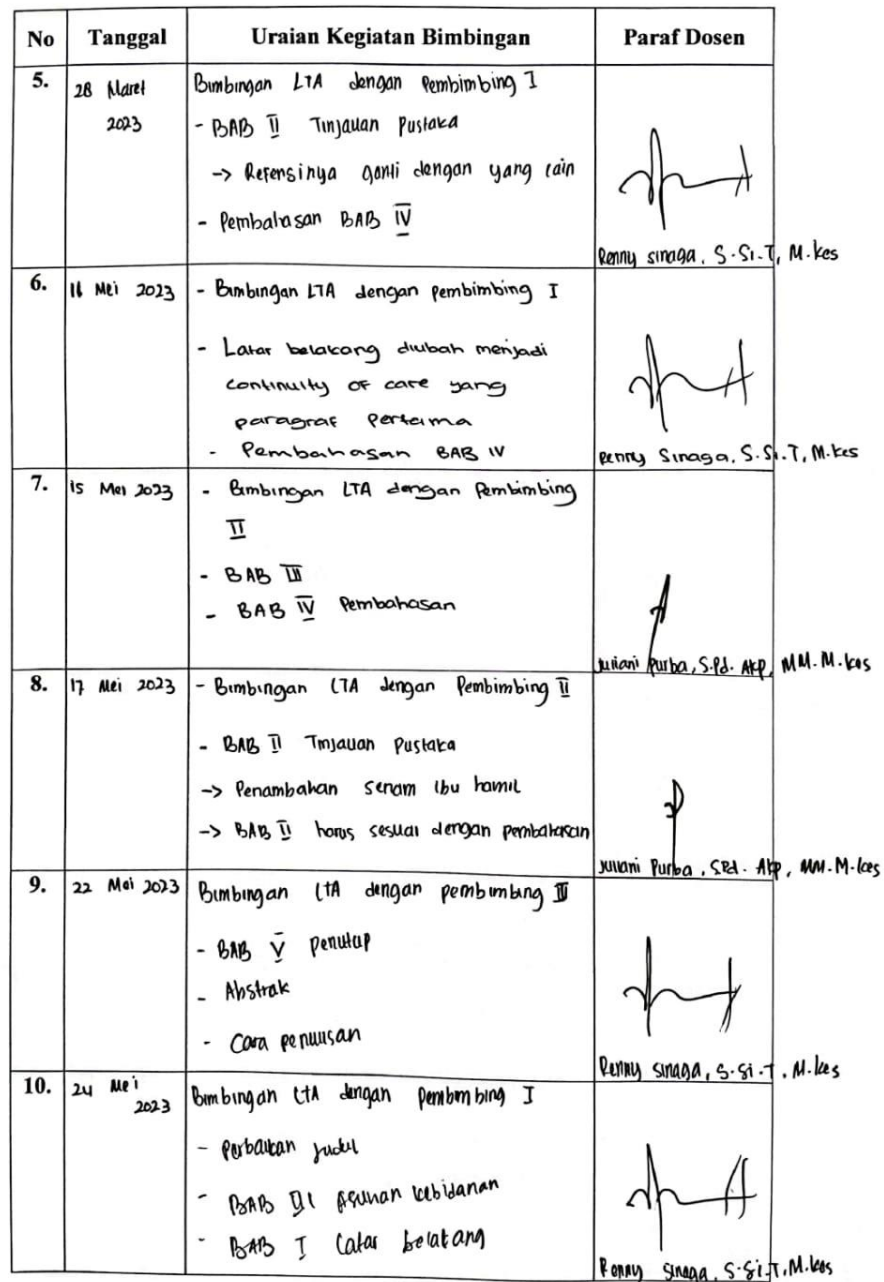 No Tanggal Uraian Kegiatan Bimbingan Paraf Dosen
5. 28 Maret 2023
Bimbingan LTA dengan Pembimbing I
- BAB II Tinjauan Pustaka
-> Refensinya ganti dengan yang lain
- Pembahasan BAB IV
Renny Sinaga, S.Si.T, M.kes
6. 16 Mei 2023
- Bimbingan LTA dengan pembimbing I
- Latar belakang diubah menjadi
continuity of care yang
paragraf pertama
- Pembahasan BAB IV
Renny Sinaga, S.Si.T, M.kes
7. 15 Mei 2023
- Bimbingan LTA dengan Pembimbing
II
- BAB III
- BAB IV Pembahasan
Juliani Purba, S.Pd. Akp, MM. M.kes
8. 17 Mei 2023
- Bimbingan LTA dengan Pembimbing II
- BAB II Tinjauan Pustaka
-> Penambahan senam ibu hamil
-> BAB II harus sesuai dengan pembahasan
Juliani Purba, S.Pd. Akp, MM. M.kes
9. 22 Mei 2023
Bimbingan LTA dengan pembimbing
- BAB V Penutup
- Abstrak
- Cara penulisan
Renny Sinaga, S.Si.T, M.kes
10. 24 Mei 2023
Bimbingan LTA dengan Pembimbing I
- Perbaikan judul
- BAB III Asuhan kebidanan
- BAB I Latar belakang
Renny Sinaga, S.Si.T, M.kes